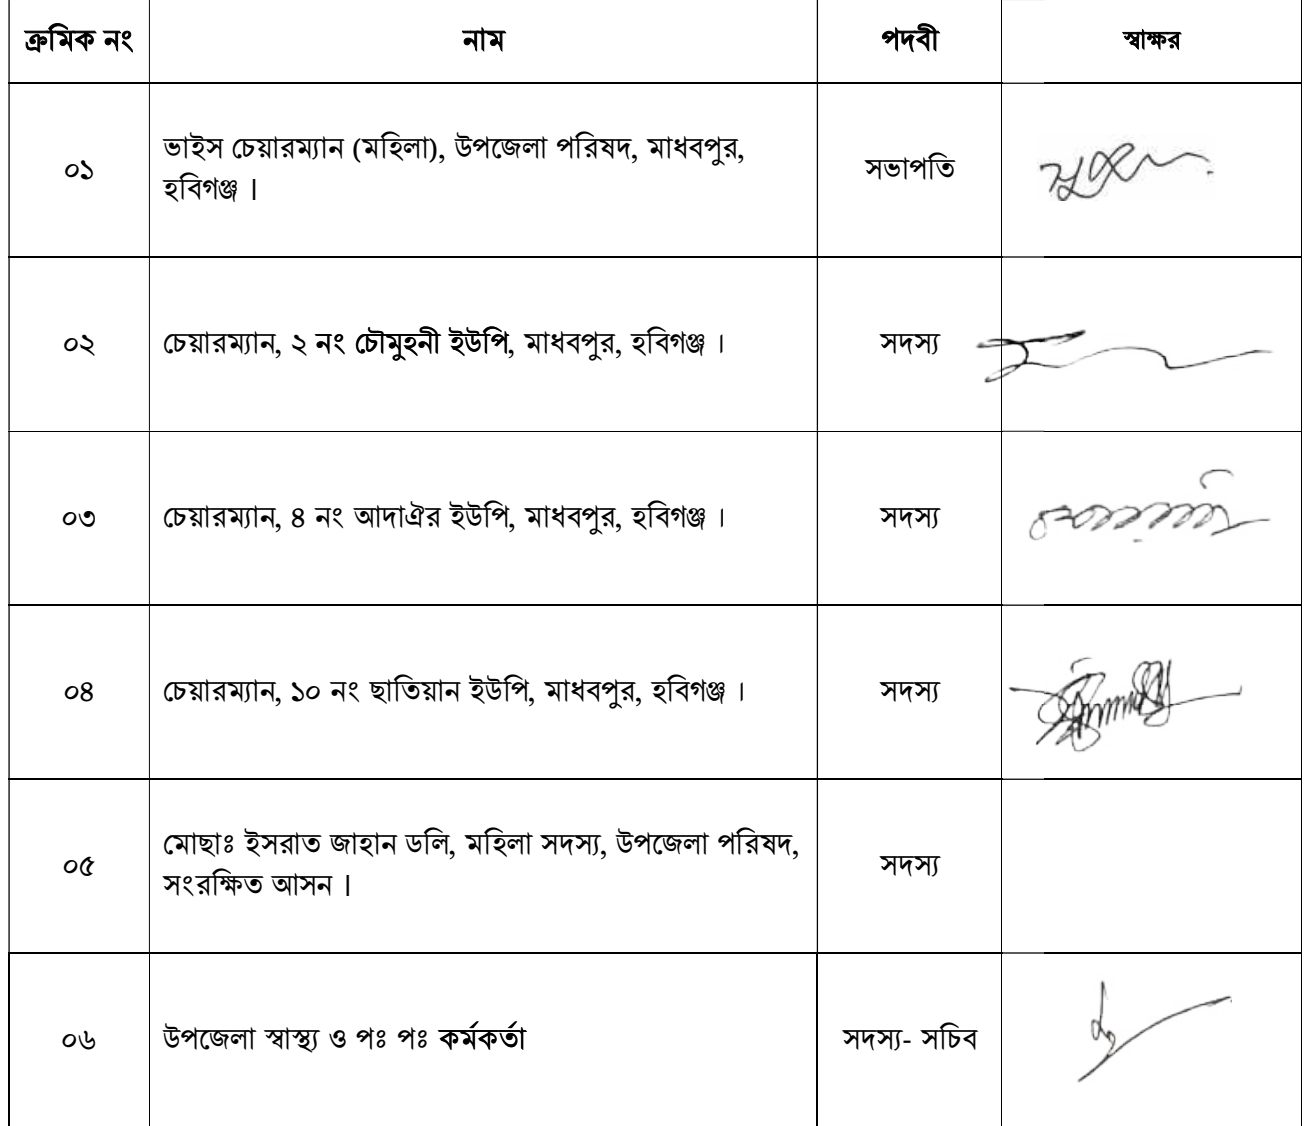 ক্রমিক নং নাম পদবী স্বাক্ষর
০১ ভাইস চেয়ারম্যান (মহিলা), উপজেলা পরিষদ, মাধবপুর, সভাপতি
হবিগঞ্জ ।
০২ চেয়ারম্যান, ২ নং চৌমুহনী ইউপি, মাধবপুর, হবিগঞ্জ । সদস্য
০৩ চেয়ারম্যান, ৪ নং আদাঐর ইউপি, মাধবপুর, হবিগঞ্জ । সদস্য
০৪ চেয়ারম্যান, ১০ নং ছাতিয়ান ইউপি, মাধবপুর, হবিগঞ্জ । সদস্য
০৫ মোছাঃ ইসরাত জাহান ডলি, মহিলা সদস্য, উপজেলা পরিষদ, সদস্য
সংরক্ষিত আসন ।
০৬ উপজেলা স্বাস্থ্য ও পঃ পঃ কর্মকর্তা সদস্য- সচিব